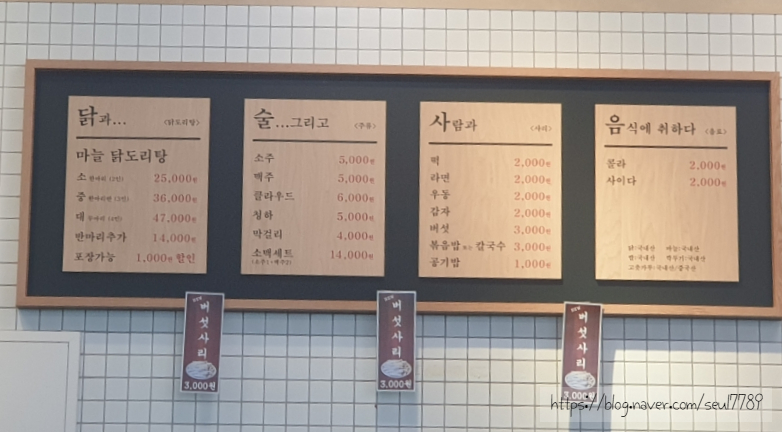 닭과... <닭도리탕>
마늘 닭도리탕
소 한마리 (2인) 25,000원
중 한마리반 (3인) 36,000원
대 두마리 (4인) 47,000원
반마리추가 14,000원
포장가능 1,000원 할인
술...그리고 <주류>
소주 5,000원
맥주 5,000원
클라우드 6,000원
청하 5,000원
막걸리 4,000원
소맥세트 14,000원
사람과 <사리>
떡 2,000원
라면 2,000원
우동 2,000원
감자 2,000원
버섯 3,000원
볶음밥 또는 칼국수 3,000원
공기밥 1,000원
음식에 취하다 <음료>
콜라 2,000원
사이다 2,000원
닭:국내산 마늘:국내산
쌀:국내산 깍두기:국내산
고춧가루:국내산/중국산
버섯사리
3,000원
버섯사리
3,000원
버섯사리
3,000원
https://blog.naver.com/seul7789